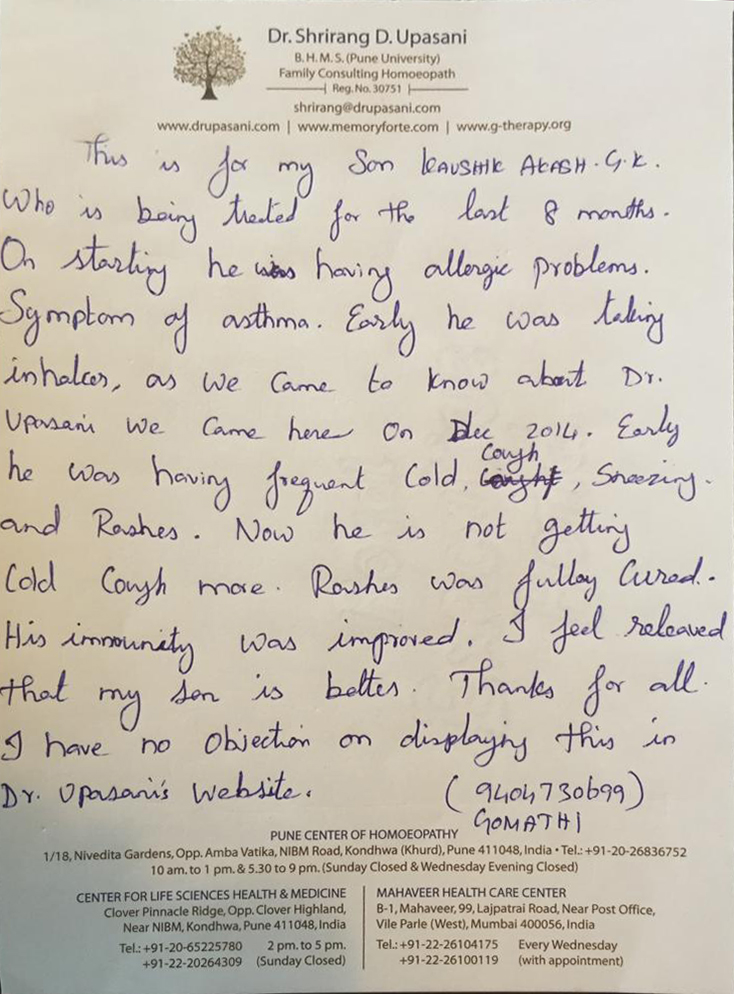 Dr. Shrirang D. Upasani
B. H. M. S. (Pune University)
Family Consulting Homoeopath
Reg. No. 30751
shrirang@drupasani.com
www.drupasani.com | www.memoryforte.com | www.g-therapy.org
This is for my Son KAUSHIK AKASH. G. K.
Who is being treated for the last 8 months.
On starting he was having allergic problems.
Symptom of asthma. Early he was taking
inhaler, as we came to know about Dr.
Upasani we came here on Dec 2014. Early
he was having frequent Cold, Cough, Sneezing.
and Rashes. Now he is not getting
Cold Cough more. Rashes was fullay Cured.
His immunity was improved. I feel releaved
that my son is better. Thanks for all.
I have no objection on displaying this in
Dr. Upasani's Website. (9404730699)
GOMATHI
PUNE CENTER OF HOMOEOPATHY
1/18, Nivedita Gardens, Opp. Amba Vatika, NIBM Road, Kondhwa (Khurd), Pune 411048, India • Tel.: +91-20-26836752
10 am. to 1 pm. & 5.30 to 9 pm. (Sunday Closed & Wednesday Evening Closed)
CENTER FOR LIFE SCIENCES HEALTH & MEDICINE
Clover Pinnacle Ridge, Opp. Clover Highland,
Near NIBM, Kondhwa, Pune 411048, India
Tel.: +91-20-65225780 2 pm. to 5 pm.
+91-22-20264309 (Sunday Closed)
MAHAVEER HEALTH CARE CENTER
B-1, Mahaveer, 99, Lajpatrai Road, Near Post Office,
Vile Parle (West), Mumbai 400056, India
Tel.: +91-22-26104175 Every Wednesday
+91-22-26100119 (with appointment)